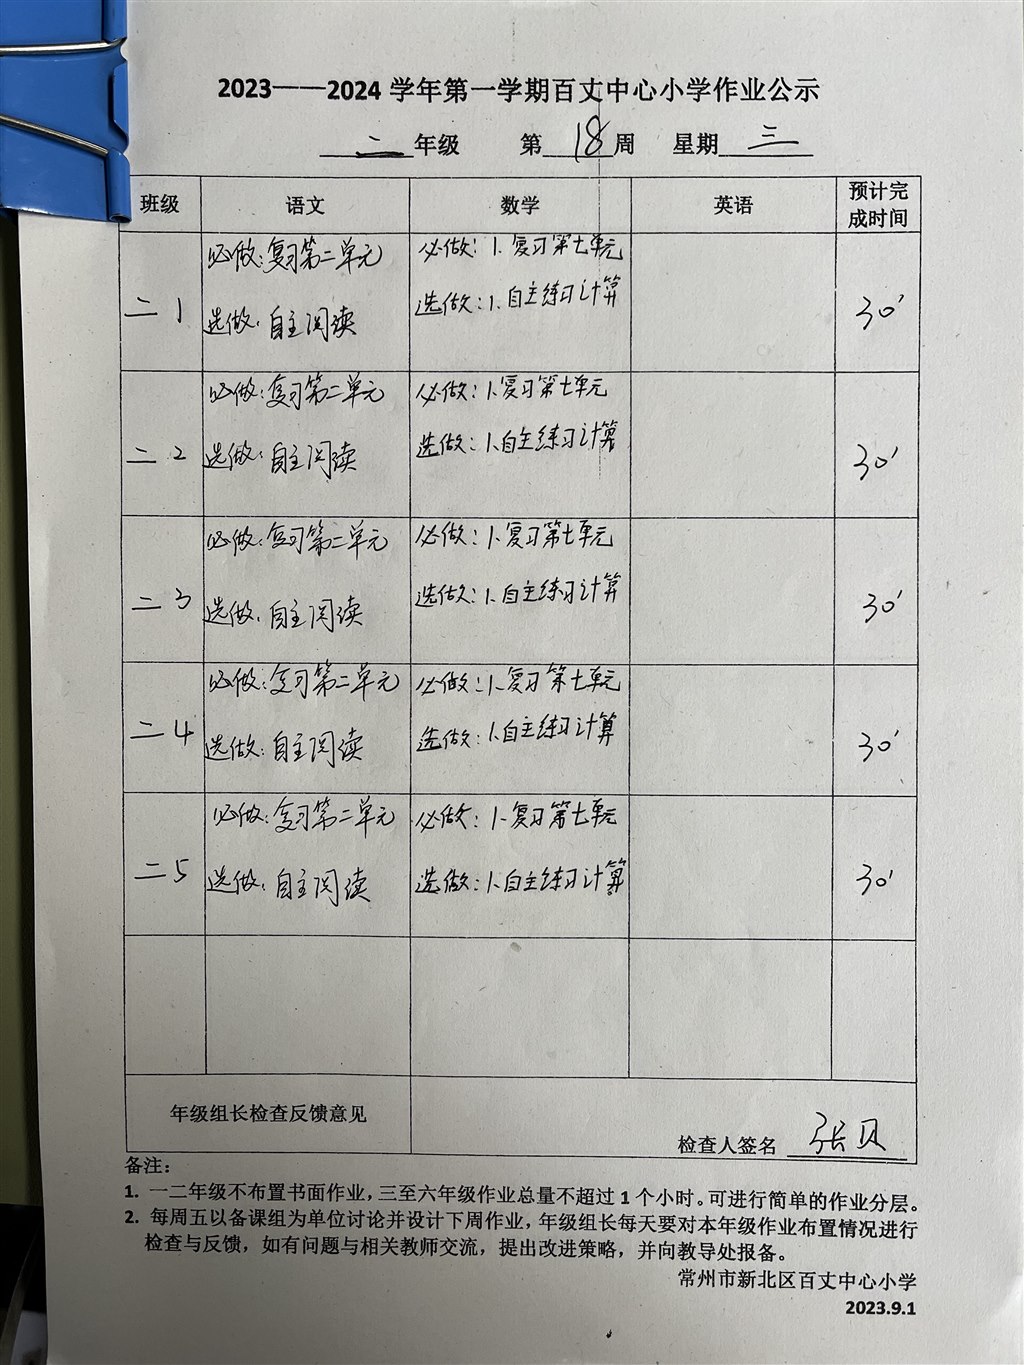 2023——2024 学年第一学期百丈中心小学作业公示
二 年级 第 18 周 星期 三
班级 语文 数学 英语 预计完成时间
二1 必做：复习第二单元 必做：1.复习第七单元 30'
选做：自主阅读 选做：1.自主练习计算
二2 必做：复习第二单元 必做：1.复习第七单元 30'
选做：自主阅读 选做：1.自主练习计算
二3 必做：复习第二单元 必做：1.复习第七单元 30'
选做：自主阅读 选做：1.自主练习计算
二4 必做：复习第二单元 必做：1.复习第七单元 30'
选做：自主阅读 选做：1.自主练习计算
二5 必做：复习第二单元 必做：1.复习第七单元 30'
选做：自主阅读 选做：1.自主练习计算
年级组长检查反馈意见
检查人签名 张贝
备注：
1. 一二年级不布置书面作业，三至六年级作业总量不超过 1 个小时。可进行简单的作业分层。
2. 每周五以备课组为单位讨论并设计下周作业，年级组长每天要对本年级作业布置情况进行
检查与反馈，如有问题与相关教师交流，提出改进策略，并向教导处报备。
常州市新北区百丈中心小学
2023.9.1